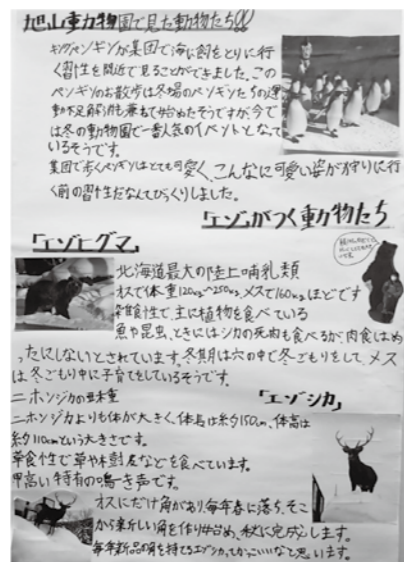 旭山動物園で見た動物たち!!
キングペンギンが集団で海に餌をとりに行
く習性を間近で見ることができました。この
ペンギンのお散歩は冬場のペンギンたちの運
動不足解消も兼ねて始めたそうですが、今で
は冬の動物園で一番人気のイベントとなって
いるそうです。
集団で歩くペンギンはとても可愛く、こんなに可愛い姿が狩りに行
く前の習性だなんてびっくりしました。
「エゾ」がつく動物たち
「エゾヒグマ」
北海道最大の陸上哺乳類
オスで体重120kg〜250kg、メスで160kgほどです
雑食性で、主に植物を食べている
魚や昆虫、ときにはシカの死肉も食べるが、肉食はめ
ったにしないとされています。冬期は穴の中で冬ごもりをして、メス
は冬ごもり中に子育てをしているそうです。
「エゾシカ」
ニホンジカの亜種
ニホンジカよりも体が大きく、体長は約150cm、体高は
約110cmという大きさです。
草食性で草や樹皮などを食べています。
甲高い特有の鳴き声です。
オスにだけ角があり、毎年春に落ち、そこ
から新しい角を作り始め、秋に完成します。
毎年新品の角を持てるエゾシカってかっこいいなと思います。